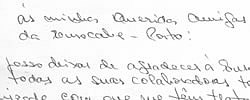 ás minhas queridas amigas
da Renascabe - Porto:
posso deixar de agradecer á
todas as suas colaboradoras
com que me têm